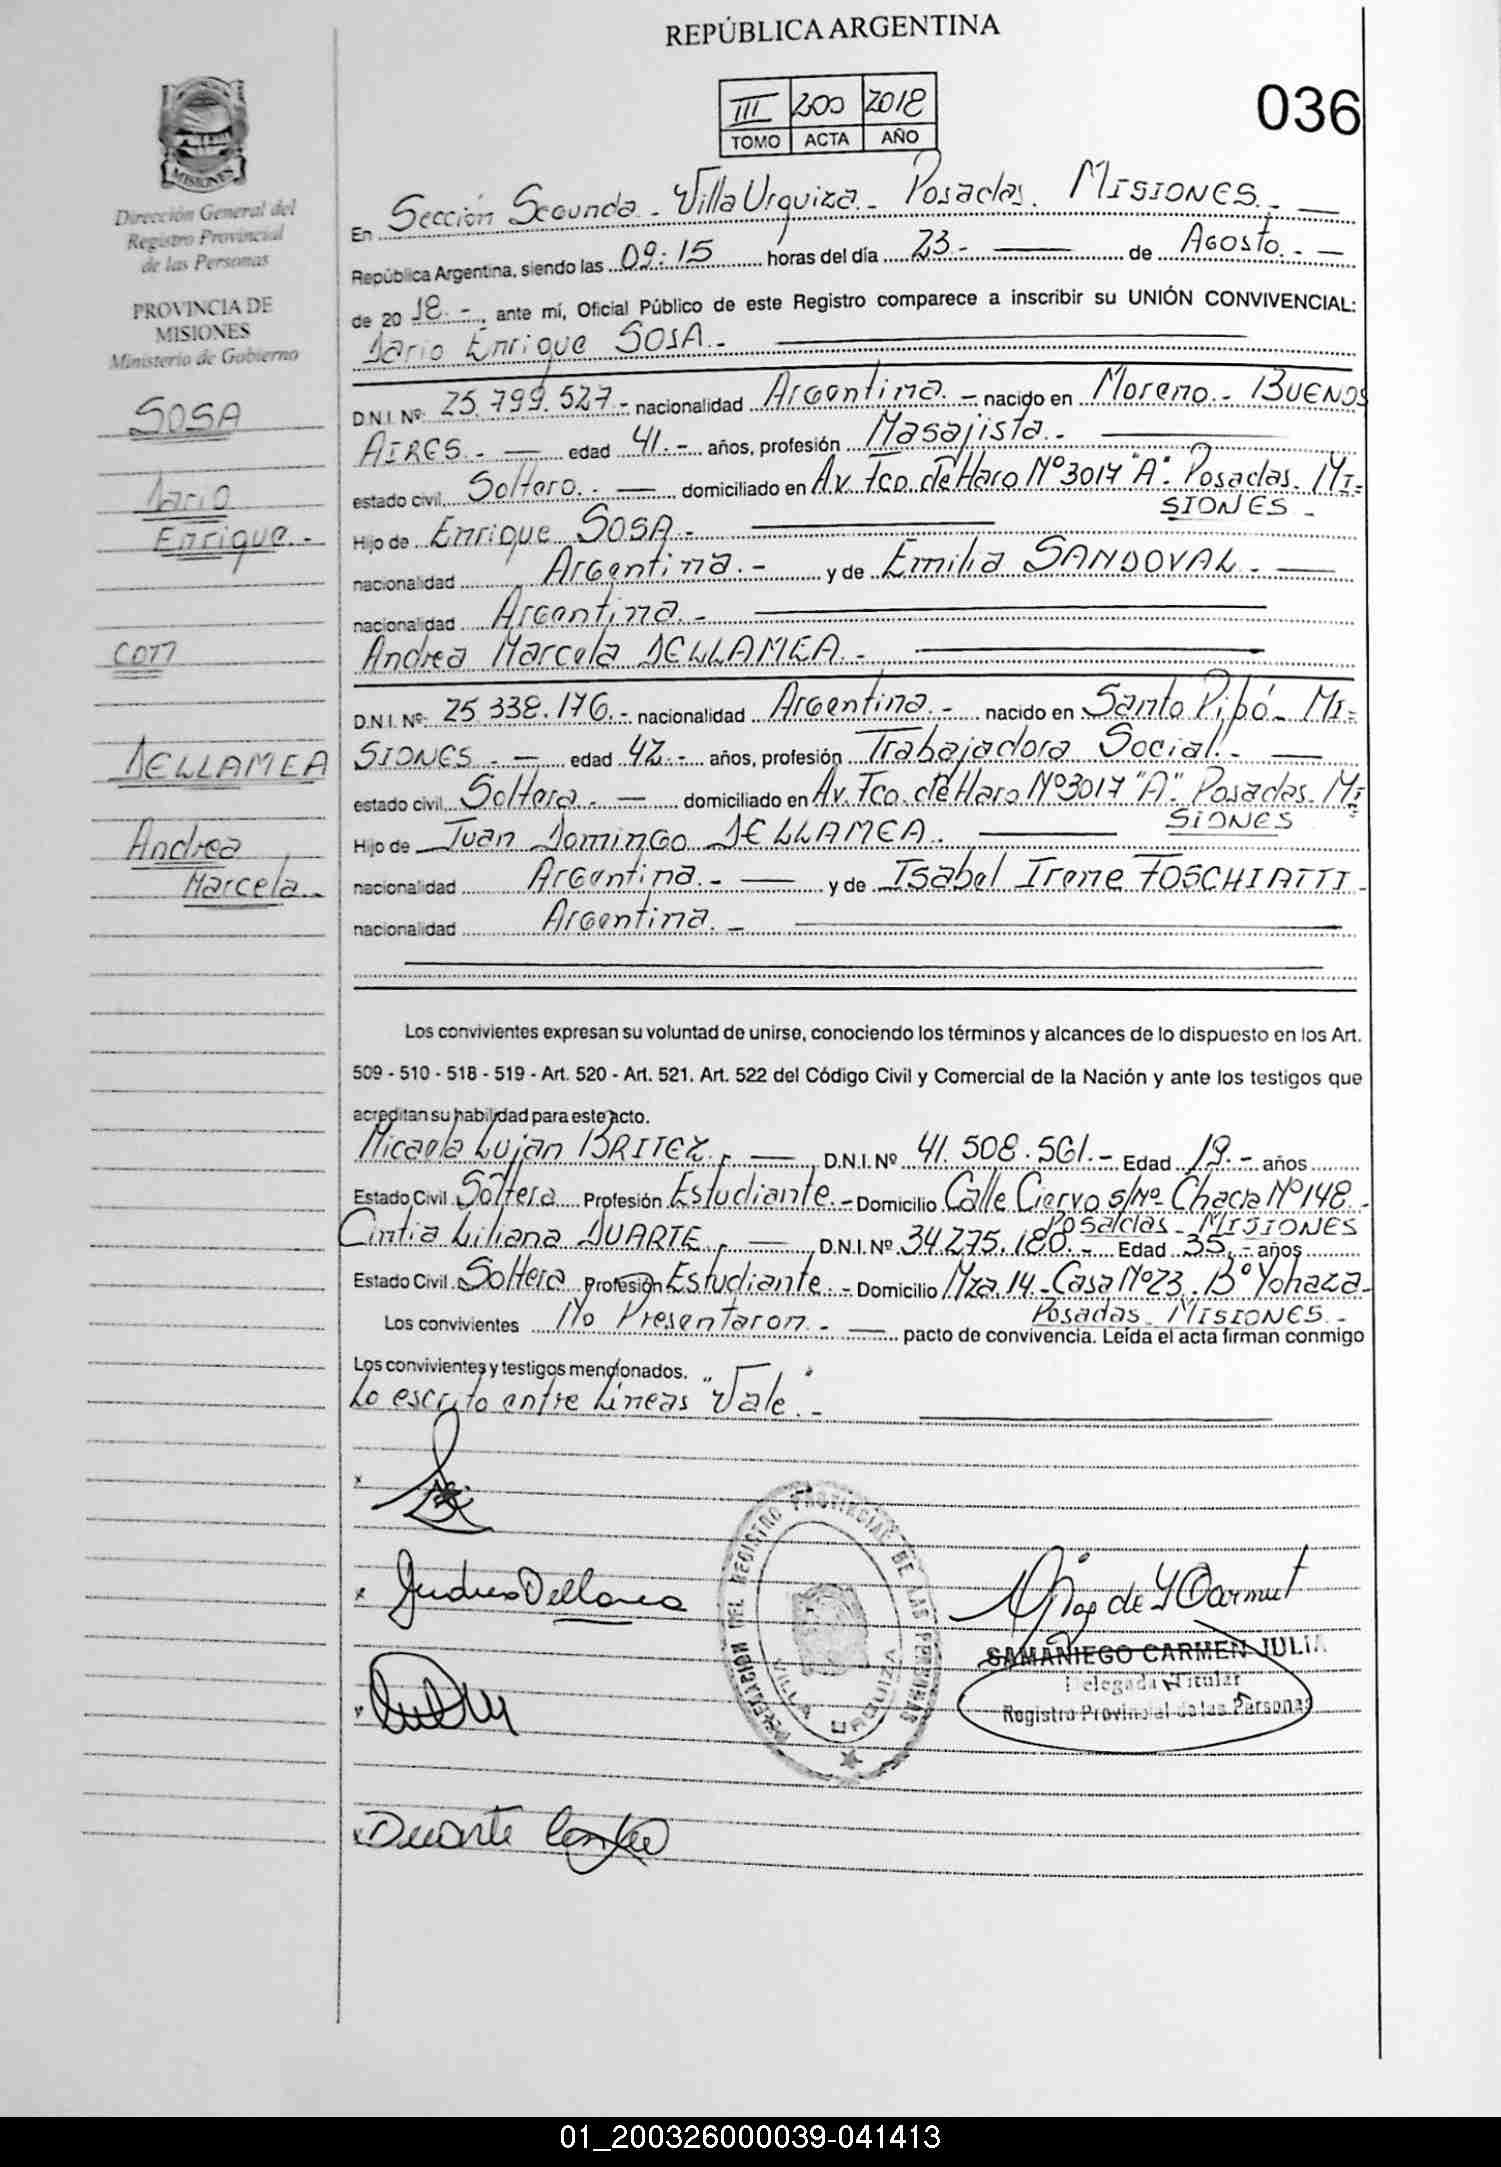 REPÚBLICA ARGENTINA
III 200 2018
TOMO ACTA AÑO
036
MISIONES
Dirección General del
Registro Provincial
de las Personas
PROVINCIA DE
MISIONES
Ministerio de Gobierno
SOSA
Dario
Enrique.-
CON
DELLAMEA
Andrea
Marcela.-
En Sección Segunda - Villa Urquiza - Posadas. MISIONES.-
República Argentina, siendo las 09:15 horas del día 23.- de Agosto.-
de 2018.-, ante mí, Oficial Público de este Registro comparece a inscribir su UNIÓN CONVIVENCIAL:
Dario Enrique SOSA.-
D.N.I. Nº: 25.799.527.- nacionalidad Argentina.- nacido en Moreno.- BUENOS
AIRES.- edad 41.- años, profesión Masajista.-
estado civil Soltero.- domiciliado en Av. Fco. de Haro Nº 3017 "A". Posadas. MI-
SIONES.-
Hijo de Enrique SOSA.-
nacionalidad Argentina.- y de Emilia SANDOVAL.-
nacionalidad Argentina.-
Andrea Marcela DELLAMEA.-
D.N.I. Nº: 25.338.176.- nacionalidad Argentina.- nacido en Santo Pipó- MI-
SIONES.- edad 42.- años, profesión Trabajadora Social.-
estado civil Soltera.- domiciliado en Av. Fco. de Haro Nº 3017 "A". Posadas. MI-
SIONES
Hijo de Juan Domingo DELLAMEA.-
nacionalidad Argentina.- y de Isabel Irene FOSCHIATTI-
nacionalidad Argentina.-
Los convivientes expresan su voluntad de unirse, conociendo los términos y alcances de lo dispuesto en los Art.
509 - 510 - 518 - 519 - Art. 520 - Art. 521. Art. 522 del Código Civil y Comercial de la Nación y ante los testigos que
acreditan su habilidad para este acto.
Micaela Lujan BRITEZ, - D.N.I. Nº 41.508.561.- Edad 19.- años
Estado Civil Soltera Profesión Estudiante.- Domicilio Calle Ciervo s/Nº- Chacra Nº 148.-
Posadas - MISIONES
Cintia Liliana DUARTE, - D.N.I. Nº 34.275.180.- Edad 35.- años
Estado Civil Soltera Profesión Estudiante.- Domicilio Mza. 14.- Casa Nº 23. Bº Yohaza-
Posadas. MISIONES.-
Los convivientes No Presentaron.- pacto de convivencia. Leída el acta firman conmigo
Los convivientes y testigos mencionados.
Lo escrito entre Líneas "Vale".-
Andrea Dellamea
DELEGACION DEL REGISTRO PROVINCIAL DE LAS PERSONAS
VILLA URQUIZA
SAMANIEGO CARMEN JULIA
Delegada Titular
Registro Provincial de las Personas
Duarte Cintia
01_200326000039-041413